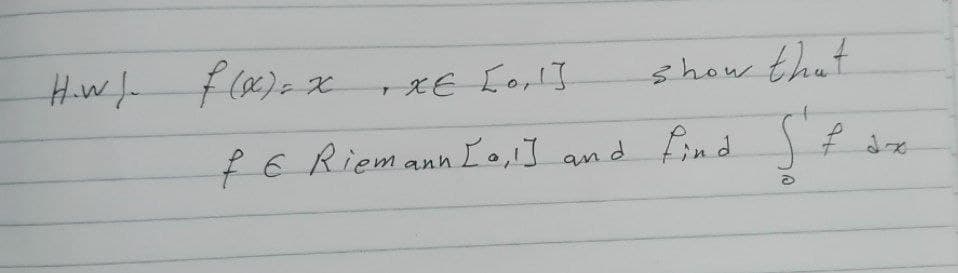 H.w/. f(x) = x , x ∈ [0,1] show that
f ∈ Riemann [0,1] and find ∫₀¹ f dx